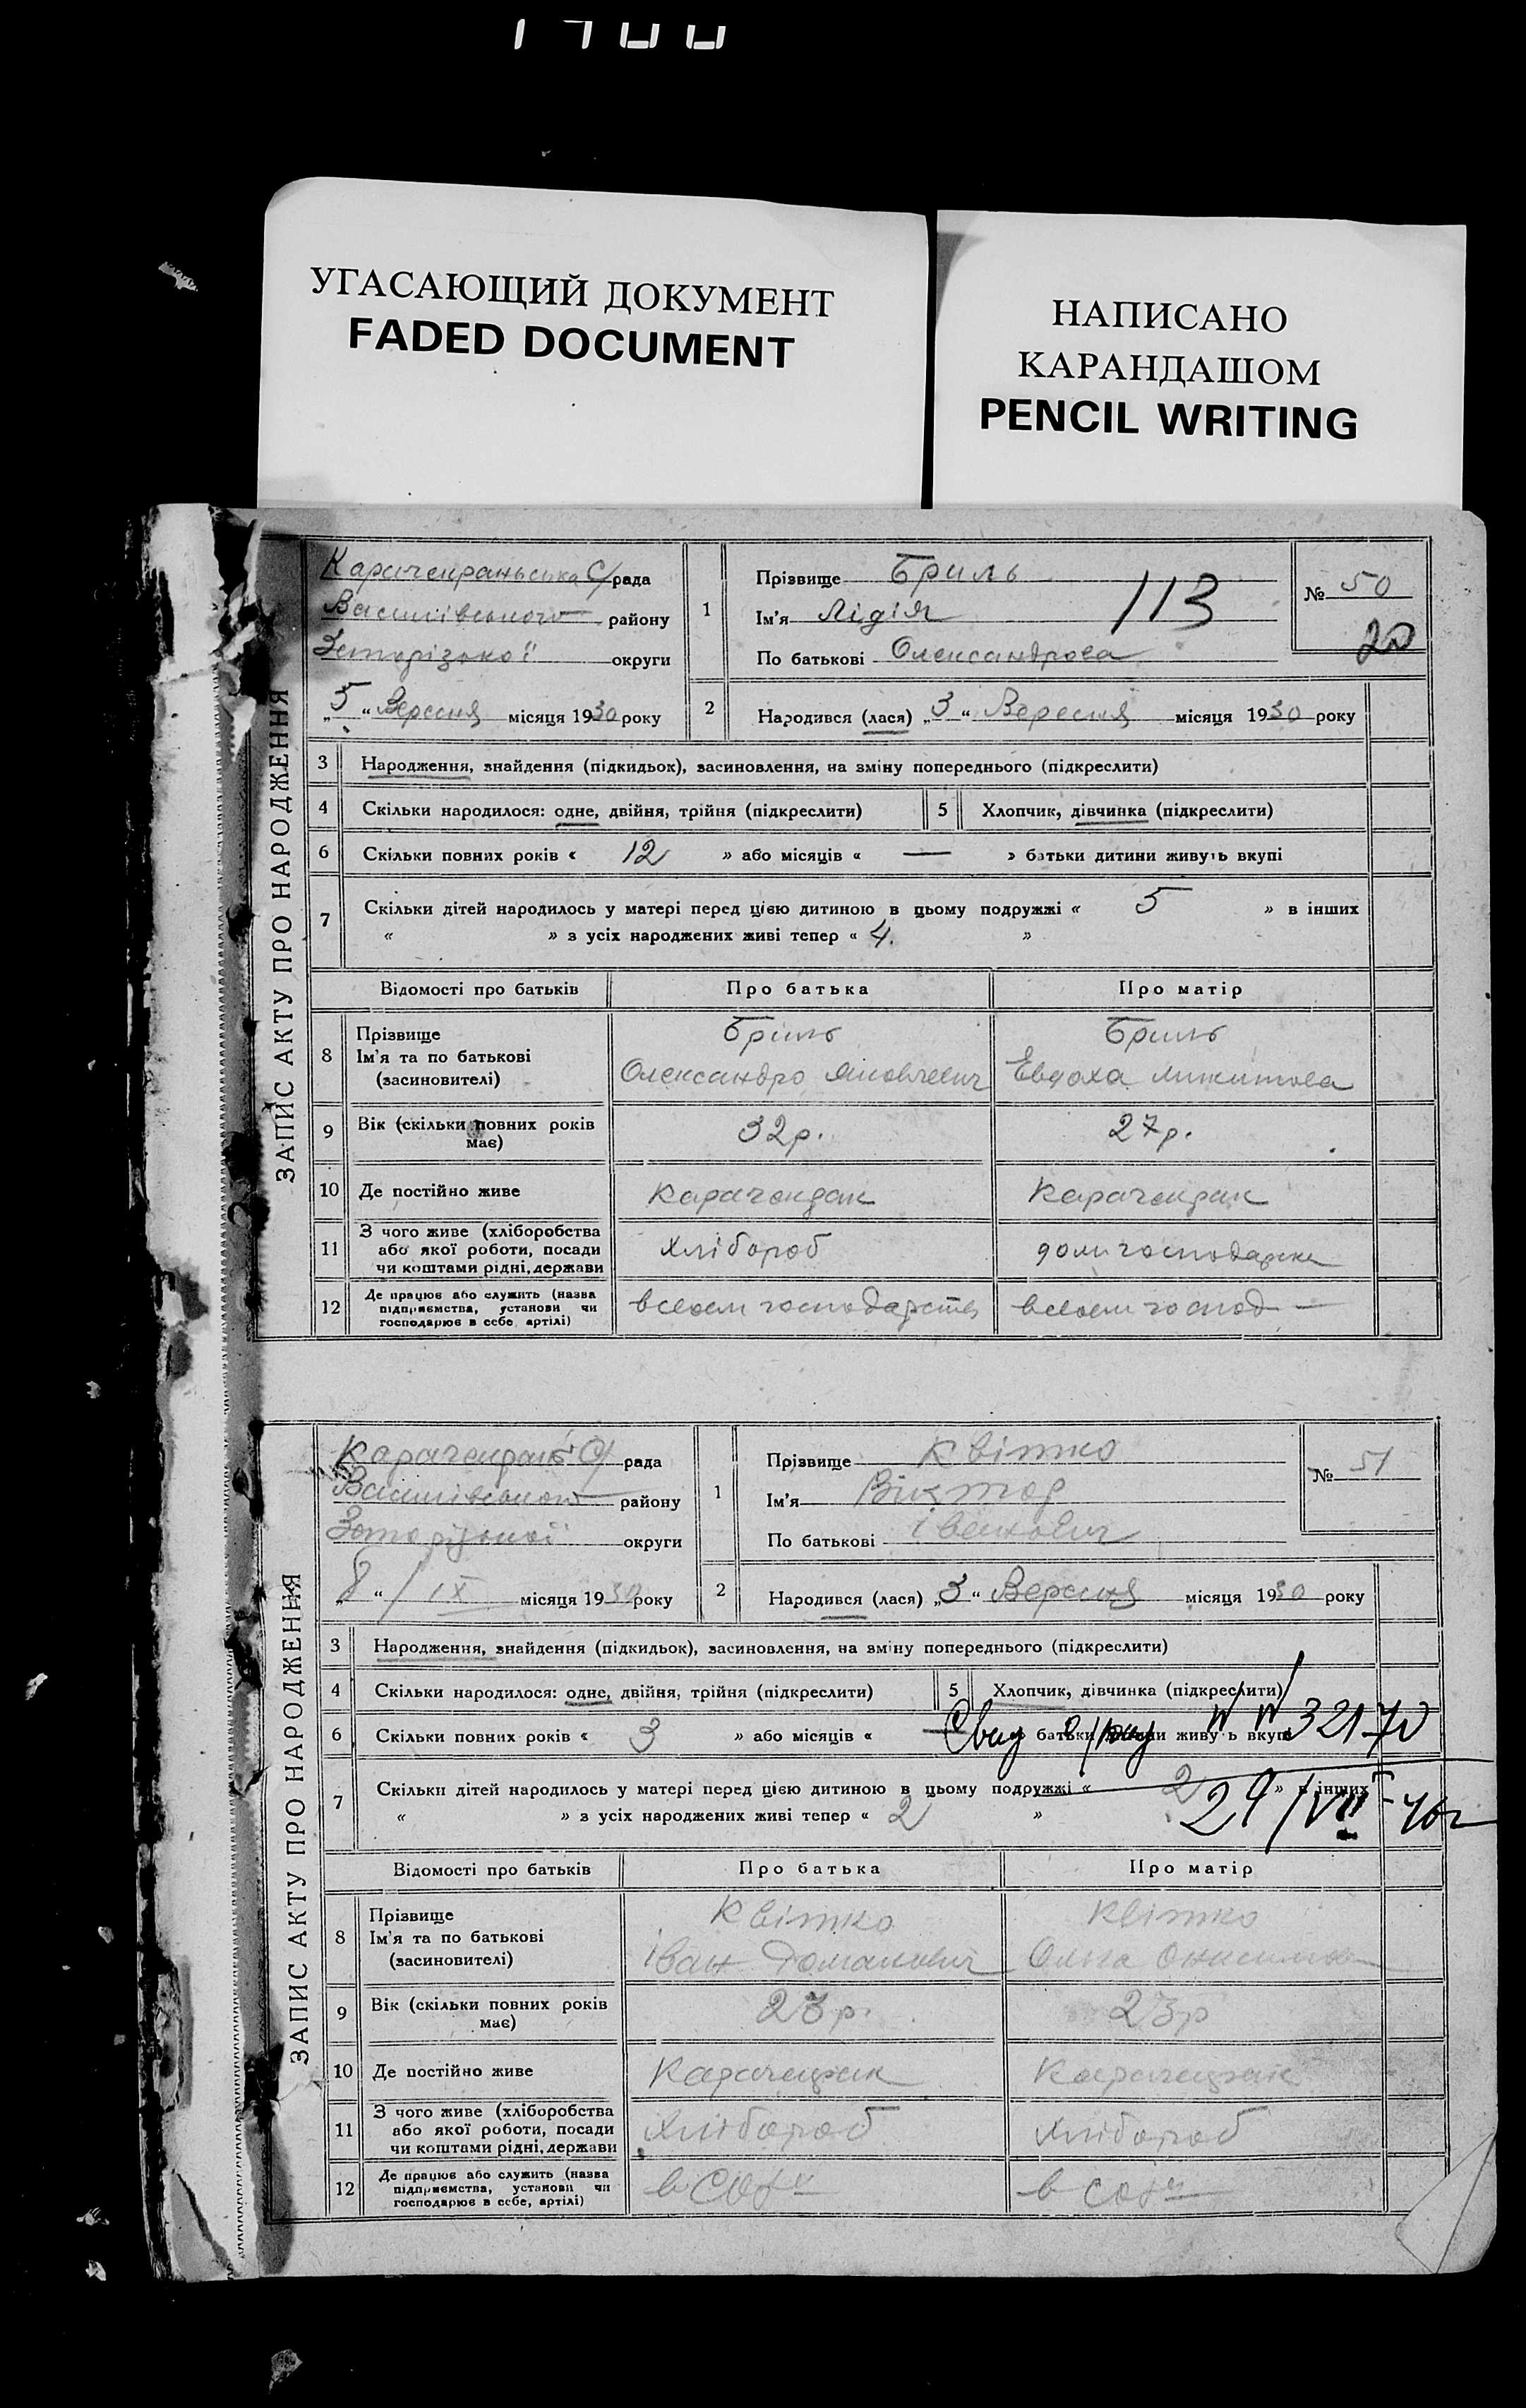 УГАСАЮЩИЙ ДОКУМЕНТ
FADED DOCUMENT
НАПИСАНО
КАРАНДАШОМ
PENCIL WRITING
ЗАПИС АКТУ ПРО НАРОДЖЕННЯ
С/рада
Василівського району
округи
„5“ Вересня місяця 1930 року
1
Прізвище Бриль
Ім'я Лідія
По батькові Олександрова
113
№ 50
20
2
Народився (лася) „3“ Вересня місяця 1930 року
3 Народження, знайдення (підкидьок), засиновлення, на зміну попереднього (підкреслити)
4 Скільки народилося: одне, двійня, трійня (підкреслити) 5 Хлопчик, дівчинка (підкреслити)
6 Скільки повних років « 12 » або місяців « — » батьки дитини живуть вкупі
7 Скільки дітей народилось у матері перед цією дитиною в цьому подружжі « 5 » в інших
« » з усіх народжених живі тепер « 4. »
Відомості про батьків Про батька Про матір
8 Прізвище Бриль Бриль
Ім'я та по батькові
(засиновителі) Олександро Яковлевич Евдоха Микитова
9 Вік (скільки повних років має) 32р. 27р.
10 Де постійно живе Карачекрак Карачекрак
11 З чого живе (хліборобства
або якої роботи, посади
чи коштами рідні, держави Хлібороб домгосподарка
12 Де працює або служить (назва
підприємства, установи чи
господарює в себе, артілі) всвоем господарств всвоем господ —
ЗАПИС АКТУ ПРО НАРОДЖЕННЯ
С/ рада
Василівського району
округи
„8“ / IX місяця 1930 року
1
Прізвище Квітко
Ім'я Віктор
По батькові Іванович
№ 51
2
Народився (лася) „3“ Вересня місяця 1930 року
3 Народження, знайдення (підкидьок), засиновлення, на зміну попереднього (підкреслити)
4 Скільки народилося: одне, двійня, трійня (підкреслити) 5 Хлопчик, дівчинка (підкреслити)
6 Скільки повних років « 3 » або місяців « — батьки дитини живуть вкупі
32170
7 Скільки дітей народилось у матері перед цією дитиною в цьому подружжі « 2 » в інших
« » з усіх народжених живі тепер « 2 »
Відомості про батьків Про батька Про матір
8 Прізвище Квітко Квітко
Ім'я та по батькові
(засиновителі) Іван Ольга
9 Вік (скільки повних років має) 23р. 23р
10 Де постійно живе Карачекрак Карачекрак
11 З чого живе (хліборобства
або якої роботи, посади
чи коштами рідні, держави Хлібороб Хлібороб
12 Де працює або служить (назва
підприємства, установи чи
господарює в себе, артілі)